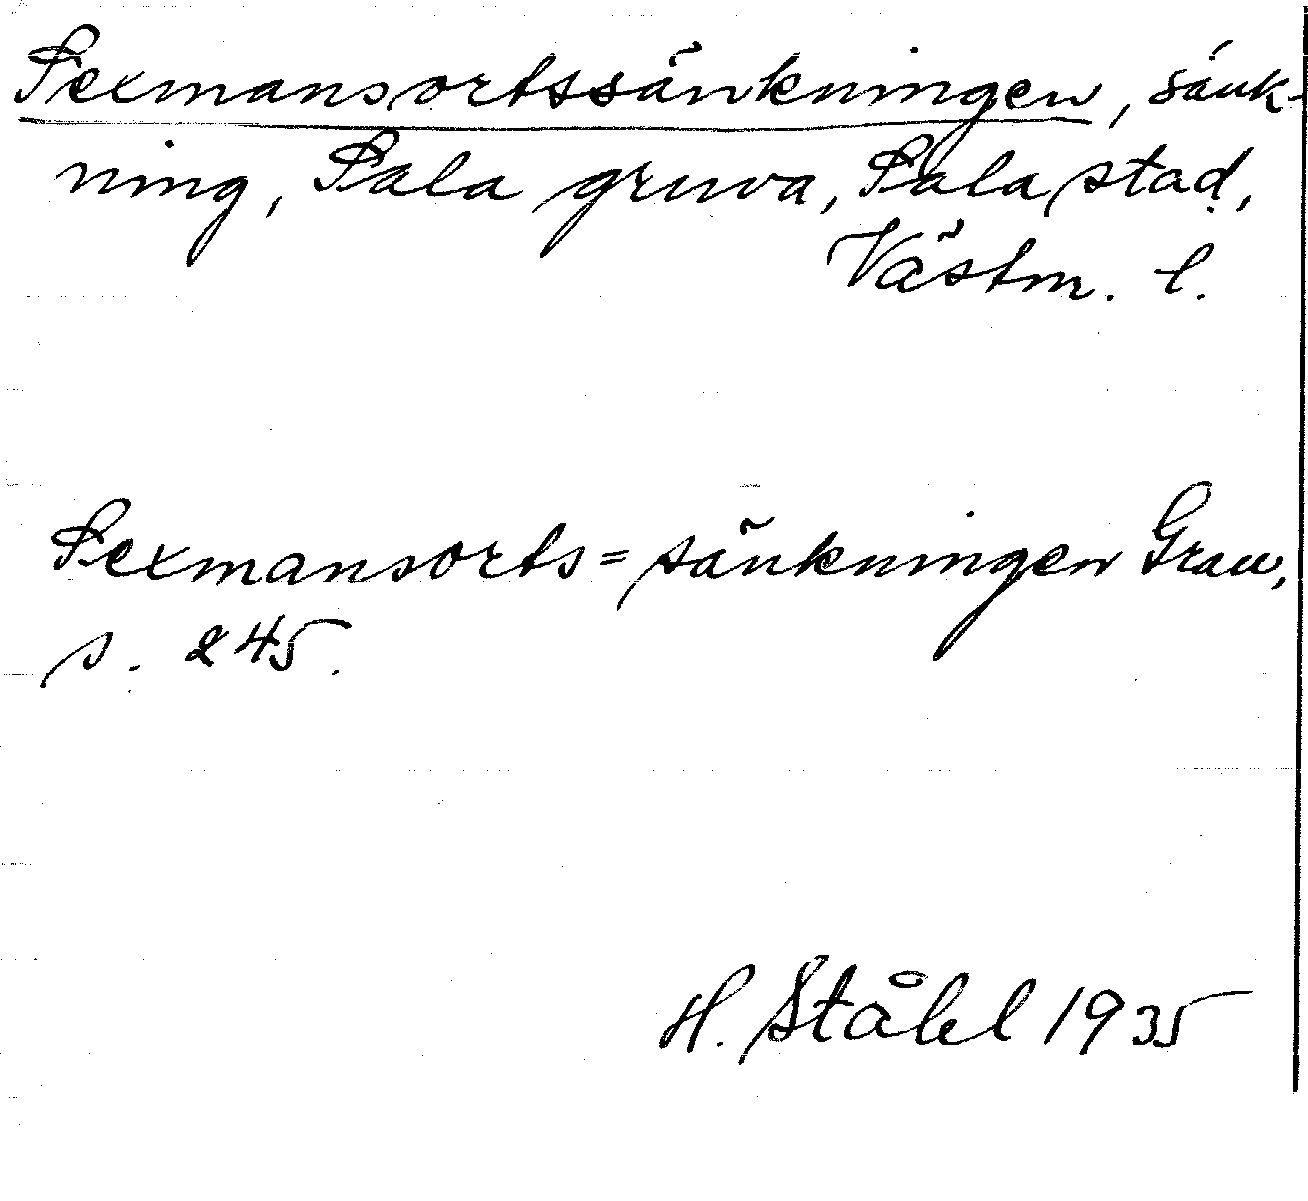 Sexmansortssänkningen, sänk-
ning, Sala gruva, Sala stad,
Västm. l.
Sexmansorts=sänkningen Grau,
s. 245.
H. Ståhl 1935